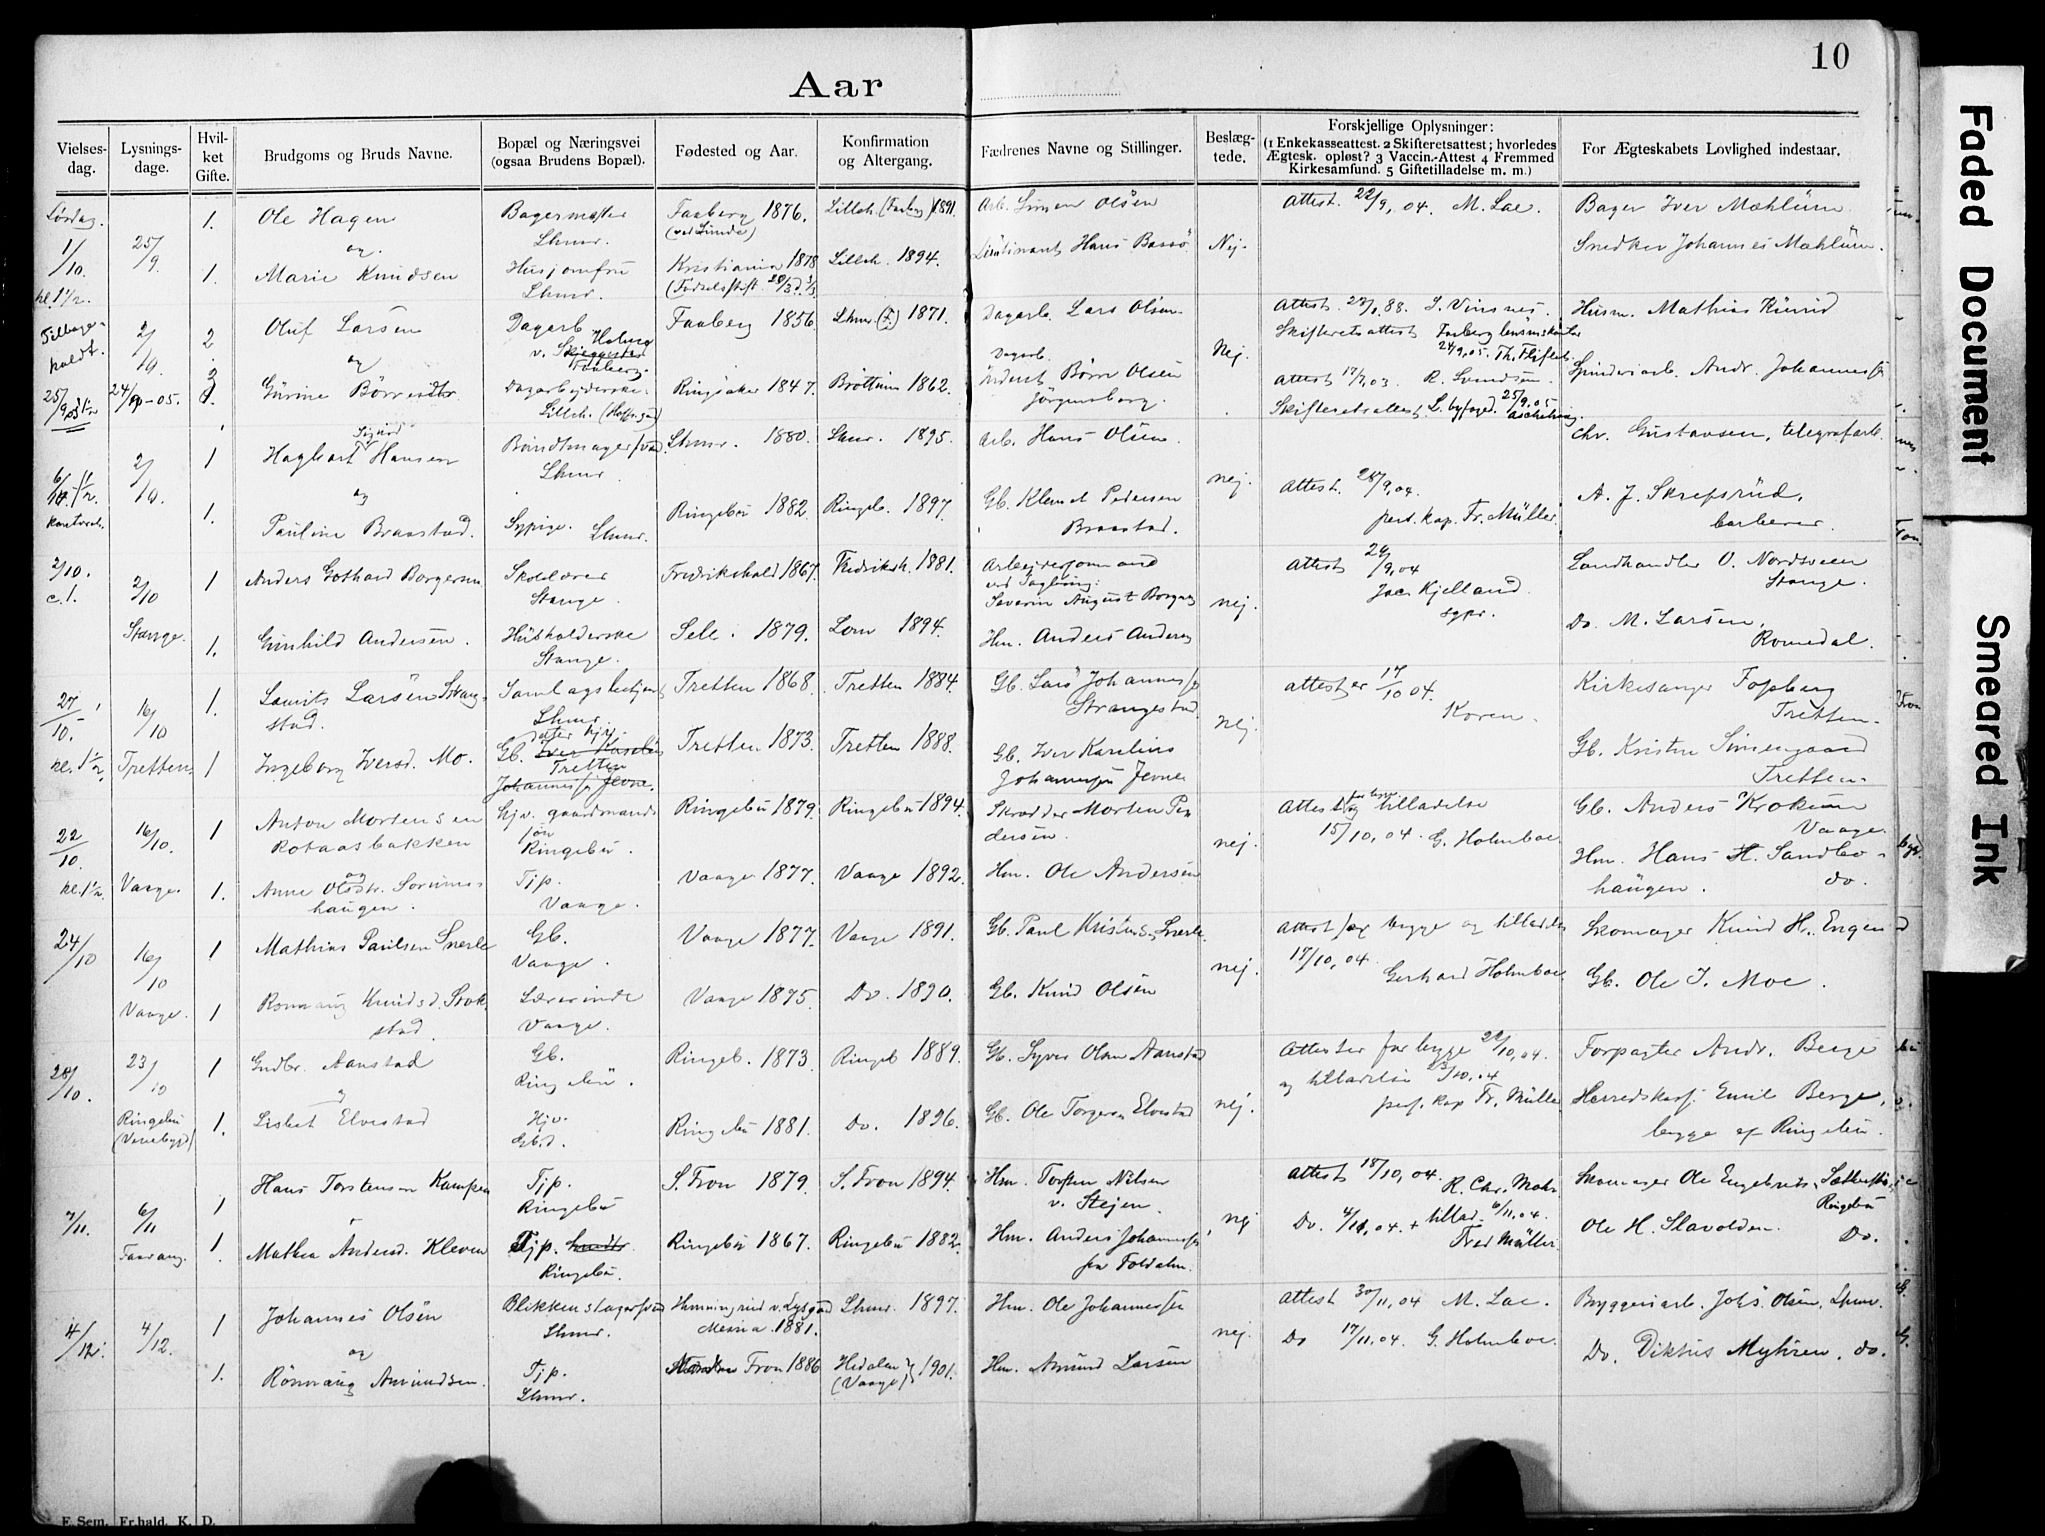 10
Aar
Vielses-
dag.
Lysnings-
dage.
Hvil-
ket
Gifte.
Brudgoms og Bruds Navne.
Bopæl og Næringsvei
(ogsaa Brudens Bopæl).
Fødested og Aar.
Konfirmation
og Altergang.
Fædrenes Navne og Stillinger.
Beslæg-
tede.
Forskjellige Oplysninger:
(1 Enkekasseattest. 2 Skifteretsattest; hvorledes
Ægtesk. opløst? 3 Vaccin.-Attest 4 Fremmed
Kirkesamfund. 5 Giftetilladelse m. m.)
For Ægteskabets Lovlighed indestaar.
Lørdag
1/10.
kl. 1 1/2.
25/9
1.
Ole Hagen
og
Bagermester
Lhmr.
Faaberg 1876.
(ved Lunde)
Lilleh. (Faaberg) 1891.
Arb. Simen Olsen
Attest 22/9, 04. M. Lae.
Bager Iver Mæhlum
1.
Marie Knudsen
Husjomfru
Lhmr.
Kristiania 1878
Lilleh. 1894.
Hans
Nej.
Snedker Johannes Mæhlum.
Tilbage-
holdt.
2/10.
2
Oluf Larsen
og
Dagarb.
Faaberg.
Faaberg 1856.
Lhmr. (F) 1871.
Dagarb. Lars Olsen
Nej.
Skifteretsattest
Husm. Mathias
24/9-05.
Gurine
Ringsaker 1847.
Brøttum 1862.
Børre Olsen
Attest 17/7, 03. R. Svendsen.
Skifteretsattest L. byfoged. 25/9, 05
Spinderiarb. Andr. Johannessen
2/10.
1
Sigurd
Hagbart Hansen
og
Bundtmagersvend
Lhmr.
Lhmr. 1880.
Lhmr. 1895.
Arb. Hans Olsen
nej.
Attest 28/9, 04.
pers. kap. Fr. Müller.
Chr. Gustavsen, telegrafarb.
1.
Pauline Braastad.
Sypige. Lhmr.
Ringebu 1882.
Ringeb. 1897.
Gb. Klemet Pedersen
Braastad.
A. J. Skrefsrud,
barberer.
2/10.
c. 1.
2/10
Stange.
1
Anders Gothard Borgersen
Skolelærer
Stange.
Fredrikshald 1867.
Fredriksh. 1881.
Arbejdsformand
Severin August
nej.
Attest 24/9, 04
Jac. Kjelland
sgpr.
Landhandler O. Nordsveen
Stange.
1.
Gunhild Andersen.
Husholderske
Stange.
Sell. 1879.
Lom 1894.
Hm. Anders Andersen
Do. M. Larsen,
Romedal.
27/10.
kl. 1 1/2.
16/10
Tretten.
1.
Laurits Larsen Strang-
stad.
Samlagsbestjent
Lhmr.
Tretten 1868.
Tretten 1884.
Gb. Lars Johannessen
Strangestad.
nej.
attester 17/10 04.
Koren.
Kirkesanger Fossberg
Tretten.
1
Ingeborg Iversd. Mo.
Gb. Iver Karelius
Tretten
Johannessen Jevne.
Tretten 1873.
Tretten 1888.
Gb. Iver Karelius
Johannessen Jevne
Gb. Kristen Simengaard
Tretten.
22/10.
kl. 1 1/2
16/10.
Vaage.
1
Anton Mortensen
Rotaasbakken
og
hjv. gaardmands
søn
Ringebu.
Ringebu 1879.
Ringebu 1894.
Skrædder Morten Pe-
dersen.
nej.
Attest og tilladelse
15/10, 04. G. Holmboe.
Gb. Anders Krokum
Vaage.
1.
Anne Olsdtr.
haugen.
Tjp.
Vaage.
Vaage 1877.
Vaage 1892.
Hm. Ole Andersen
Hm. Hans H. Sandbo-
haugen. do.
24/10
16/10
Vaage.
1
Mathias Paulsen Snerle
Gb.
Vaage.
Vaage 1877.
Vaage 1891.
Gb. Paul Kristens. Snerle.
nej.
Attest for begge og tilladelse
17/10, 04.
Gerhard Holmboe
Skomager Knud H. Engen
1
Ronnaug Knudsd. Stok-
stad.
Lærerinde
Vaage.
Vaage 1875
Do. 1890.
Gb. Knud Olsen
Gb. Ole J. Moe.
28/10.
23/10
Ringebu
(Venebygd)
1
Gudbr. Aanstad
Gb.
Ringebu.
Ringeb. 1873.
Ringeb 1889.
Gb. Syver Olsen Aanstad
nej.
Attester for begge 22/10, 04.
og tilladelse 23/10, 04
pers. kap Fr. Müller
Forpagter Andr. Berge
1.
Lisbet Elvestad
Hjv.
Gbd.
Ringebu 1881.
Do. 1896.
Gb. Ole Torgersen Elvestad
Herredskass. Emil Berge,
begge af Ringebu.
7/11.
6/11
Faavang.
1
Hans Torstensen Kampen
Tjp.
Ringebu
S. Fron 1879.
S. Fron 1894.
Hm. Torsten Nilsen
v. Steien.
nej
Attest 18/10, 04.
R. Chr. Mohr
Skomager Ole Engebrets.
Ringebu
1.
Mathea Andersd. Kleven
Tjp.
Ringebu.
Ringebu 1867.
Ringebu 1882.
Hm. Anders Johannessen
fra Foldalen.
Do. 4/11, 04. + tillad. 6/11, 04.
Fred Müller.
Ole H. Slavolden. Do.
4/12.
4/12.
1
Johannes Olsen
og
Blikkenslagersvend
Lhmr.
Mesna. 1881.
Lhmr. 1897.
Hm. Ole Johannessen
nej.
Attest 30/11, 04 M. Lae.
Bryggeriarb. Johs. Olsen, Lhmr.
1.
Rønnaug Amundsen.
Tjp.
Lhmr.
Fron 1886
Hedalen
(Vaage) 1901.
Hm. Amund Larsen
Do 17/11, 04. G. Holmboe.
Do. Diktus Myhren. do.
F. Sem. Fr.hald. K. D.
Faded Document
Smeared Ink